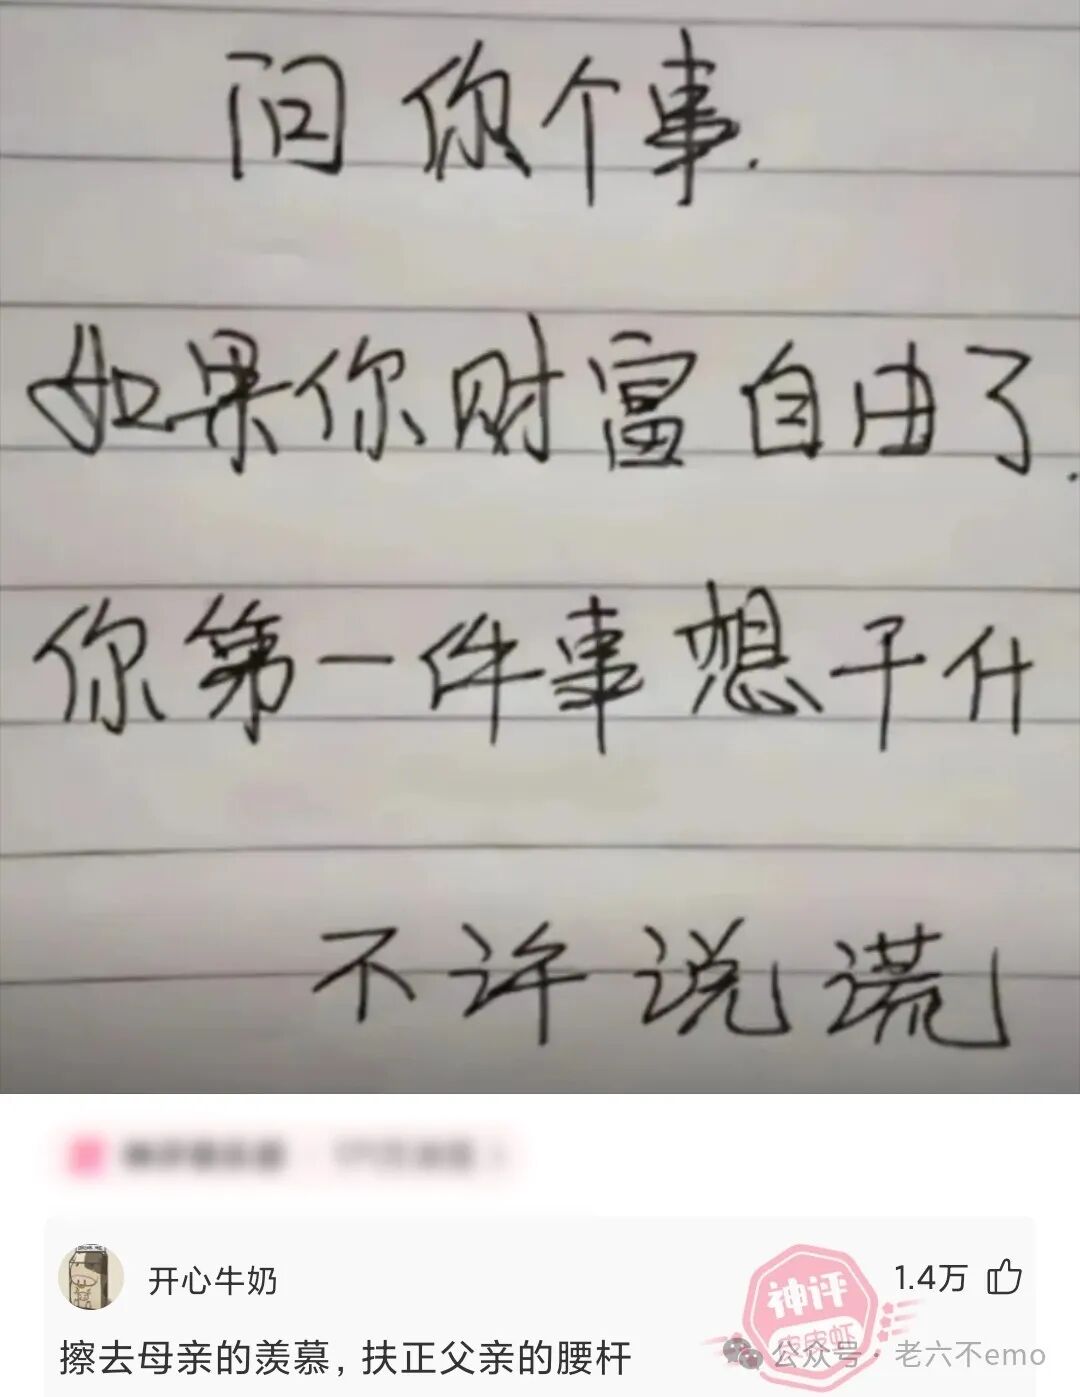 问你个事.
如果你财富自由了.
你第一件事想干什
不许说谎
开心牛奶
1.4万
神评
皮皮虾
擦去母亲的羡慕，扶正父亲的腰杆
公众号·老六不emo